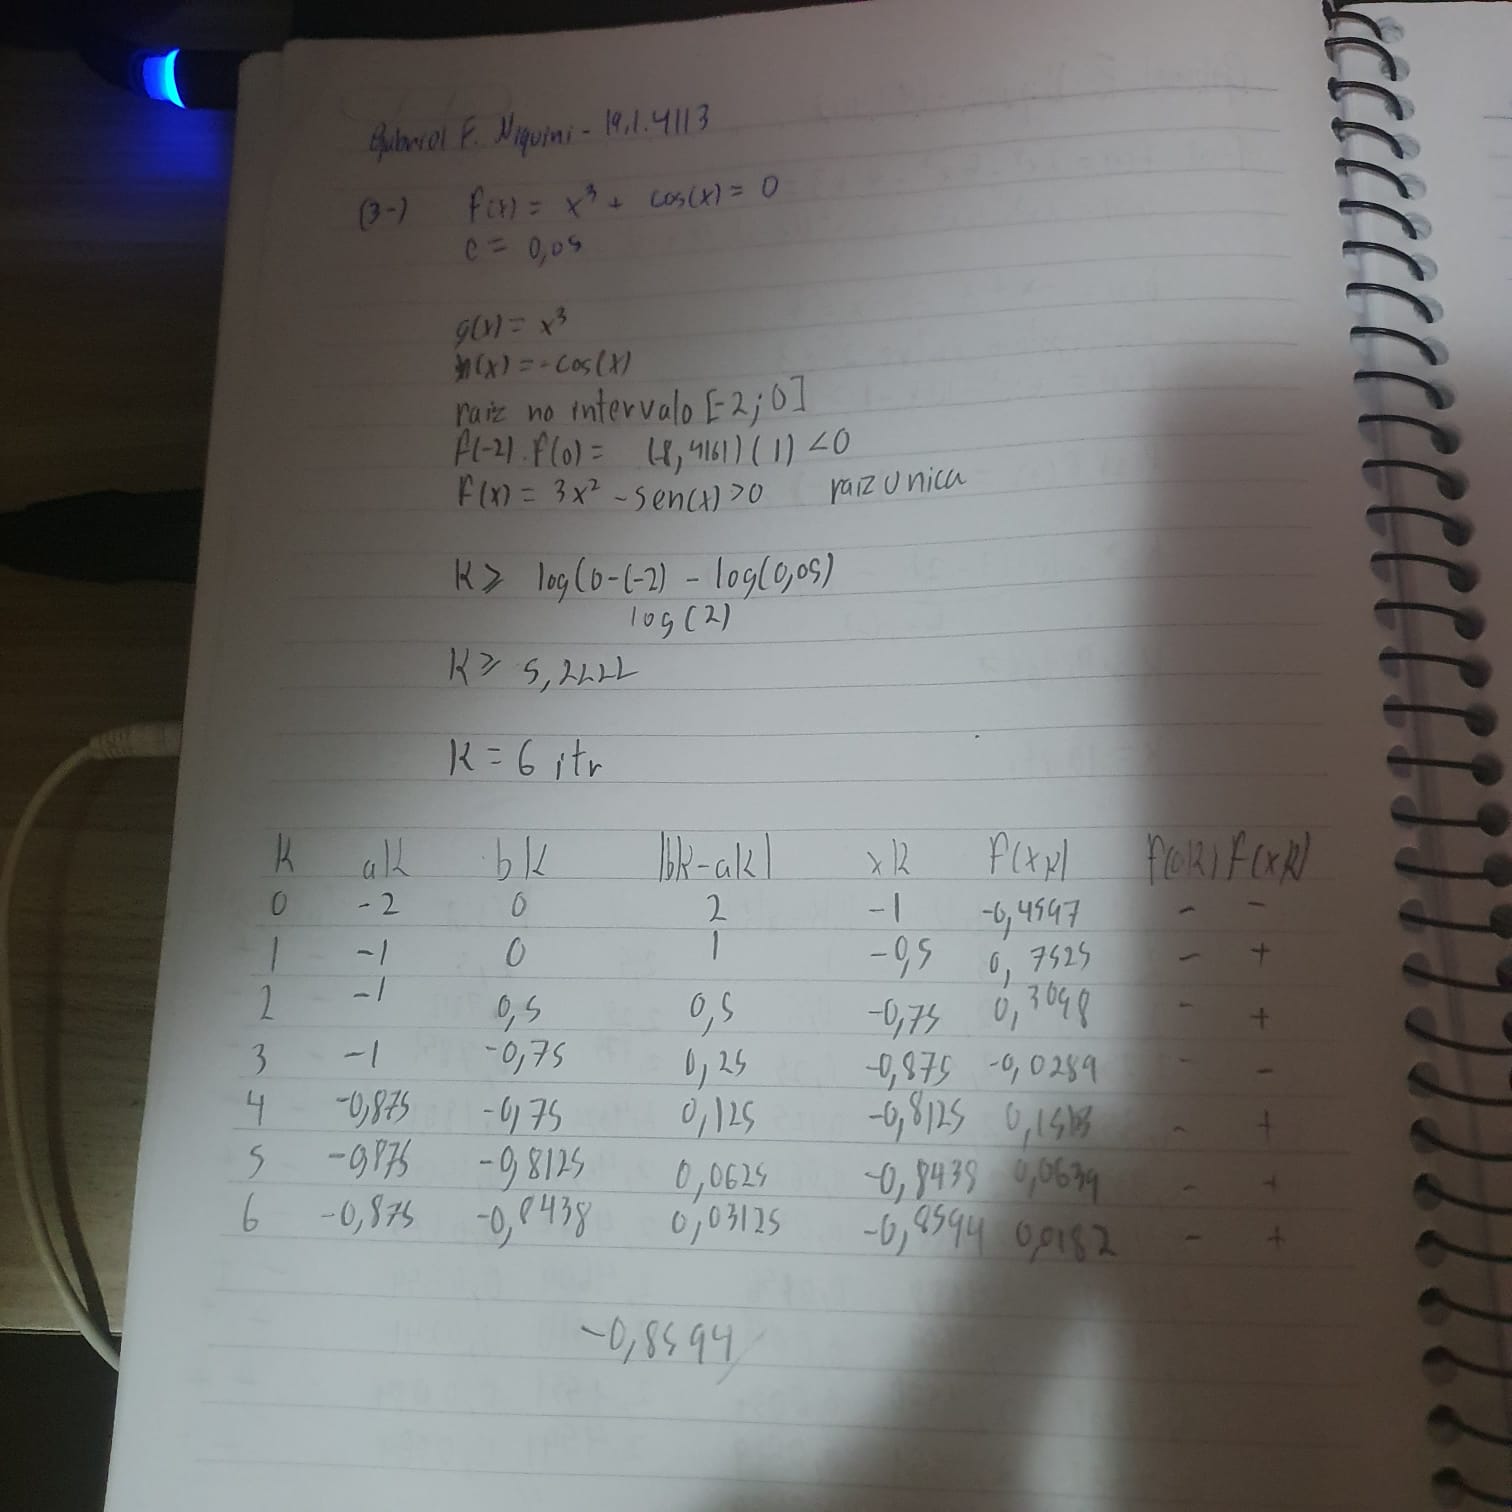 Gabriel F. Niquini - 19.1.4113
(3-) f(x) = x³ + cos(x) = 0
e = 0,05
g(x) = x³
h(x) = -cos(x)
raiz no intervalo [-2; 0]
f(-2).f(0) = (-8,4161)(1) <0
F(x) = 3x² - sen(x) >0 raiz unica
K ≥ log(0-(-2) - log(0,05)
log(2)
K ≥ 5,2222
K = 6 itr
K ak bk |bk-ak| xk F(xk) f(ak) f(xk)
0 -2 0 2 -1 -0,4597 - -
1 -1 0 1 -0,5 0,7525 - +
2 -1 0,5 0,5 -0,75 0,3098 - +
3 -1 -0,75 0,25 -0,875 -0,0289 - -
4 -0,875 -0,75 0,125 -0,8125 - +
5 -0,875 -0,8125 0,0625 -0,8438 0,0639 - +
6 -0,875 -0,8438 0,03125 -0,8594 0,0182 - +
-0,8594